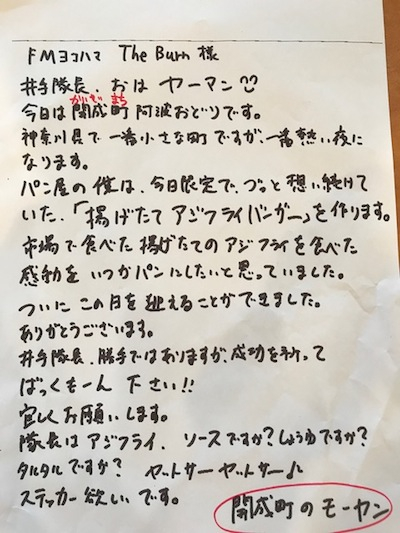 FMヨコハマ The Burn 様
井手隊長、おは ヤーマン
かいせい まち
今日は 開成町 阿波おどりです。
神奈川県で一番小さな町ですが、一番熱い夜に
なります。
パン屋の僕は、今日限定で、づっと想い続けて
いた、「揚げたて アジフライバーガー」を作ります。
市場で食べた揚げたてのアジフライを食べた
感動を いつかパンにしたいと思っていました。
ついに この日を迎えることができました。
ありがとうございます。
井手隊長、勝手ではありますが、成功を祈って
ばっくもーん 下さい!!
宜しくお願いします。
隊長は アジフライ、ソースですか?しょうゆですか?
タルタルですか? ヤットサーヤットサー♪
ステッカー欲しいです。
開成町のモーヤン